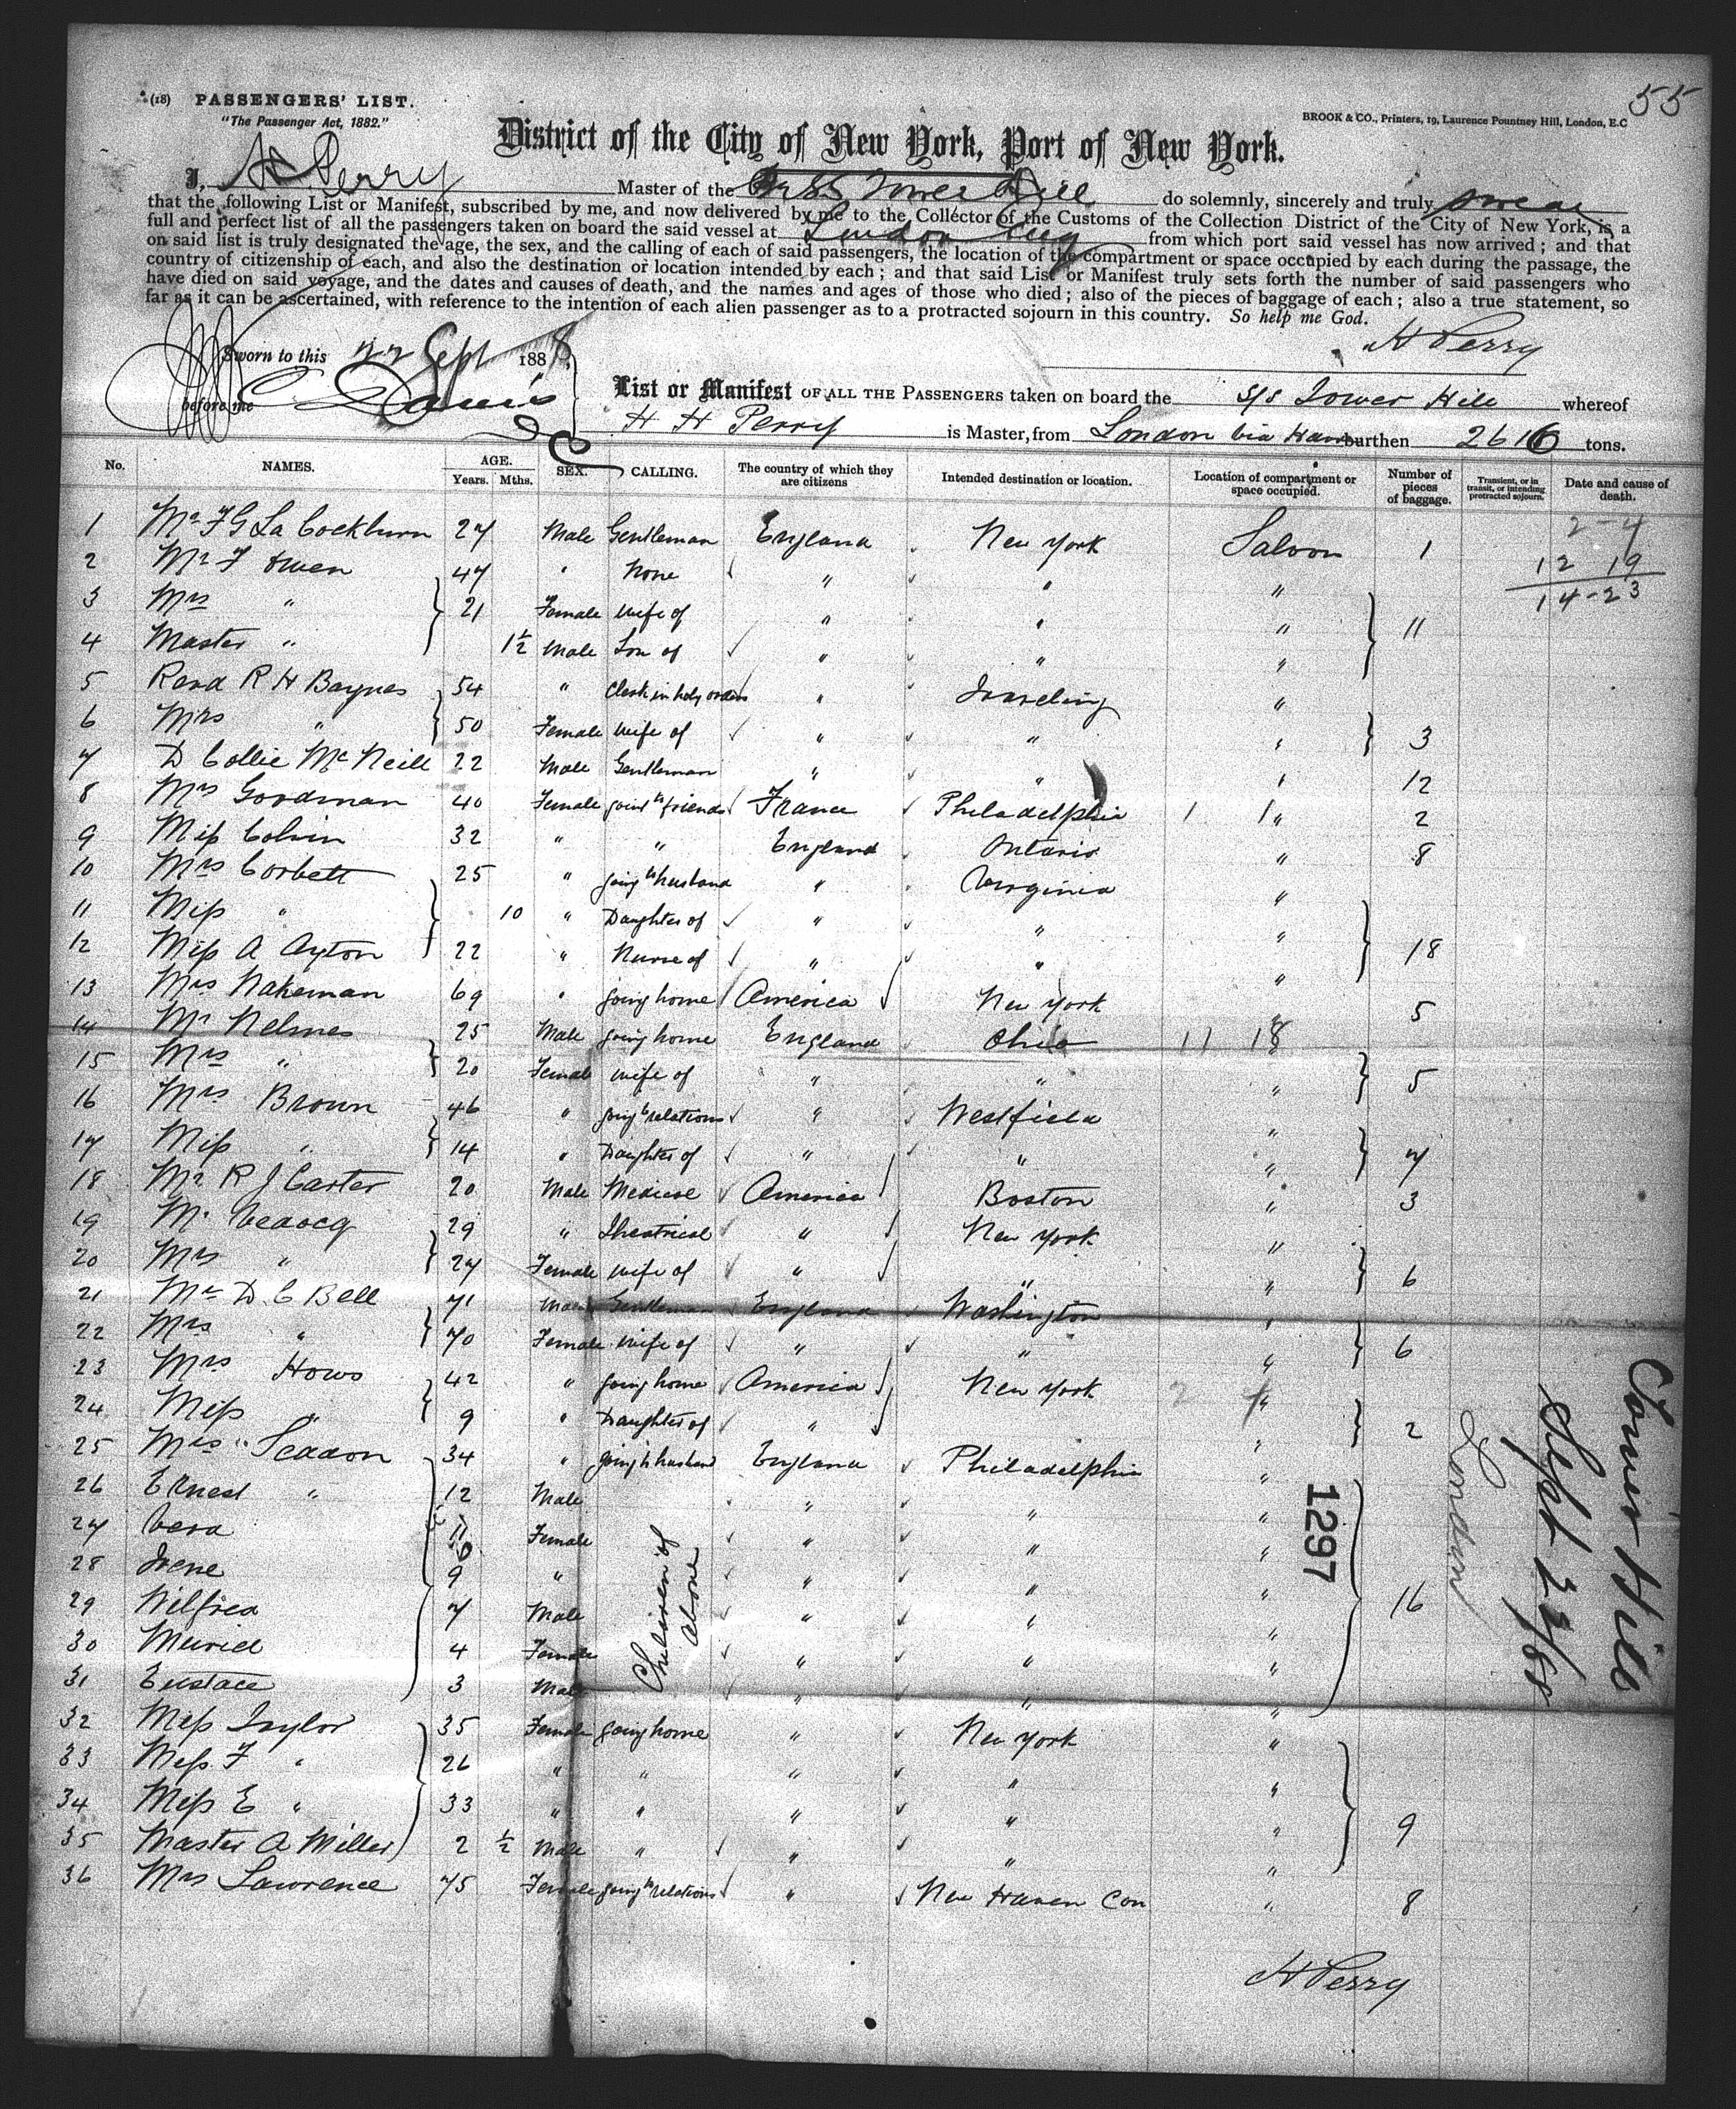 55
(18) PASSENGERS' LIST.
"The Passenger Act, 1882."
BROOK & CO., Printers, 19, Laurence Pountney Hill, London, E.C
District of the City of New York, Port of New York.
I, H Perry Master of the Br SS Tower Hill do solemnly, sincerely and truly swear
that the following List or Manifest, subscribed by me, and now delivered by me to the Collector of the Customs of the Collection District of the City of New York, is a
full and perfect list of all the passengers taken on board the said vessel at London Eng from which port said vessel has now arrived; and that
on said list is truly designated the age, the sex, and the calling of each of said passengers, the location of the compartment or space occupied by each during the passage, the
country of citizenship of each, and also the destination or location intended by each; and that said List or Manifest truly sets forth the number of said passengers who
have died on said voyage, and the dates and causes of death, and the names and ages of those who died; also of the pieces of baggage of each; also a true statement, so
far as it can be ascertained, with reference to the intention of each alien passenger as to a protracted sojourn in this country. So help me God.
H Perry
Sworn to this 22 Sept 1888
before me C Davis
List or Manifest OF ALL THE PASSENGERS taken on board the S/S Tower Hill whereof
H H Perry is Master, from London burthen 2616 tons.
No. NAMES. AGE. Years. Mths. SEX. CALLING. The country of which they are citizens Intended destination or location. Location of compartment or space occupied. Number of pieces of baggage. Transient, or in transit, or intending protracted sojourn. Date and cause of death.
2-4
12 19
14-23
1 Mr F G La Cockburn 27 Male Gentleman England New York Saloon 1
2 Mr F Owen 47 " None " " "
3 Mrs " 21 Female Wife of " " " 11
4 Master " 1½ Male Son of " " "
5 Revd R H Baynes 54 " Clerk in holy orders " Traveling "
6 Mrs " 50 Female Wife of " " " 3
7 D Collie McNeill 22 Male Gentleman " " " 12
8 Mrs Goodman 40 Female going to friends France Philadelphia 1 1 " 2
9 Miss Colvin 32 " " England Ontario " 8
10 Mrs Corbett 25 " going to husband " Virginia "
11 Miss " 10 " Daughter of " " "
12 Miss A Ayton 22 " Nurse of " " " 18
13 Mrs Wakeman 69 " going home America New York " 5
14 Mr Nelmes 25 Male going home England Ohio 11 18 "
15 Mrs " 20 Female Wife of " " " 5
16 Mrs Brown 46 " going to relations " Westfield "
17 Miss " 14 " Daughter of " " " 7
18 Mr R J Carter 20 Male Medical America Boston " 3
19 Mr 29 " Theatrical " New York "
20 Mrs " 27 Female Wife of " " " 6
21 Mr D. C Bell 71 Male Gentleman England Washington "
22 Mrs " 70 Female Wife of " " " 6
23 Mrs Hows 42 " going home America New York 2 4 "
24 Miss " 9 " Daughter of " " " 2
25 Mrs Seddon 34 " going to husband England Philadelphia "
26 Ernest " 12 Male " " "
27 Vera 11 Female " " "
28 Irene 9 " " " "
29 Wilfred 7 Male " " " 16
30 Muriel 4 Female " " "
31 Eustace 3 Male " " "
Children of above
32 Miss Taylor 35 Female going home " New York "
33 Miss F " 26 " " " " "
34 Miss E " 33 " " " " " 9
35 Master A Miller 2 ½ Male " " " "
36 Mrs Lawrence 75 Female going to relations " New Haven Con " 8
H Perry
1297
Tower Hill
Sept 22/88
London